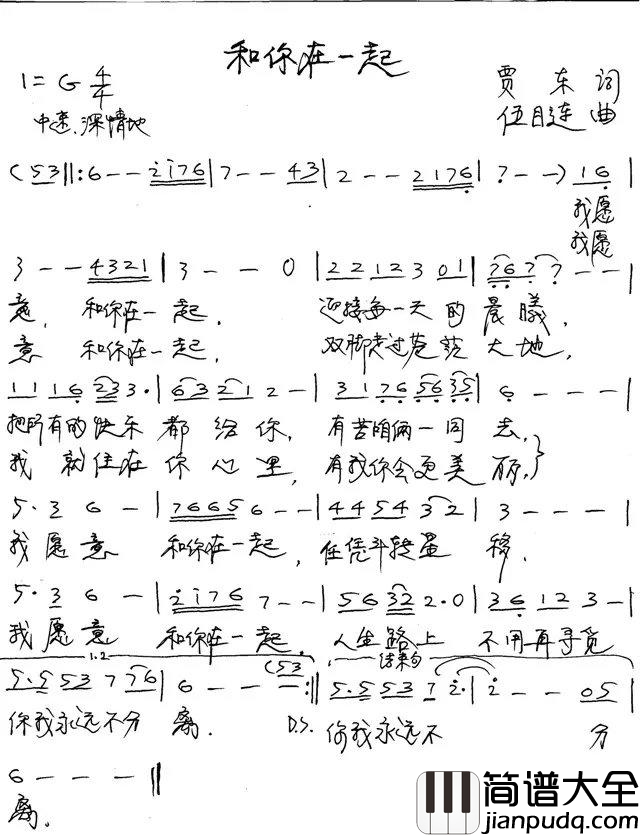 和你在一起
1=G 4/4
贾东 词
中速、深情地
伍月连 曲
(53||:6--2176|7--43|2--2176|7--)16|
我愿
我愿
3--4321|3--0|2212301|7677--|
意, 和你在一起, 迎接每一天的晨曦,
意 和你在一起, 双脚走过苍茫大地,
1116233·|63212-|31765635|6---|
把所有的快乐都给你, 有苦咱俩一同去,
我就住在你心里, 有我你会更美丽,
5·36-|76656--|445432|3---|
我愿意 和你在一起, 任凭斗转星移.
5·36-|21767--|56322·0|36123-|
我愿意 和你在一起. 人生路上 不用再寻觅
1.2 结束句
5·553776|6--(53:||5·55372·|2--05|
你我永远不分离. D.S. 你我永远不 分
6---||
离.
简谱大全
jianpudq.com